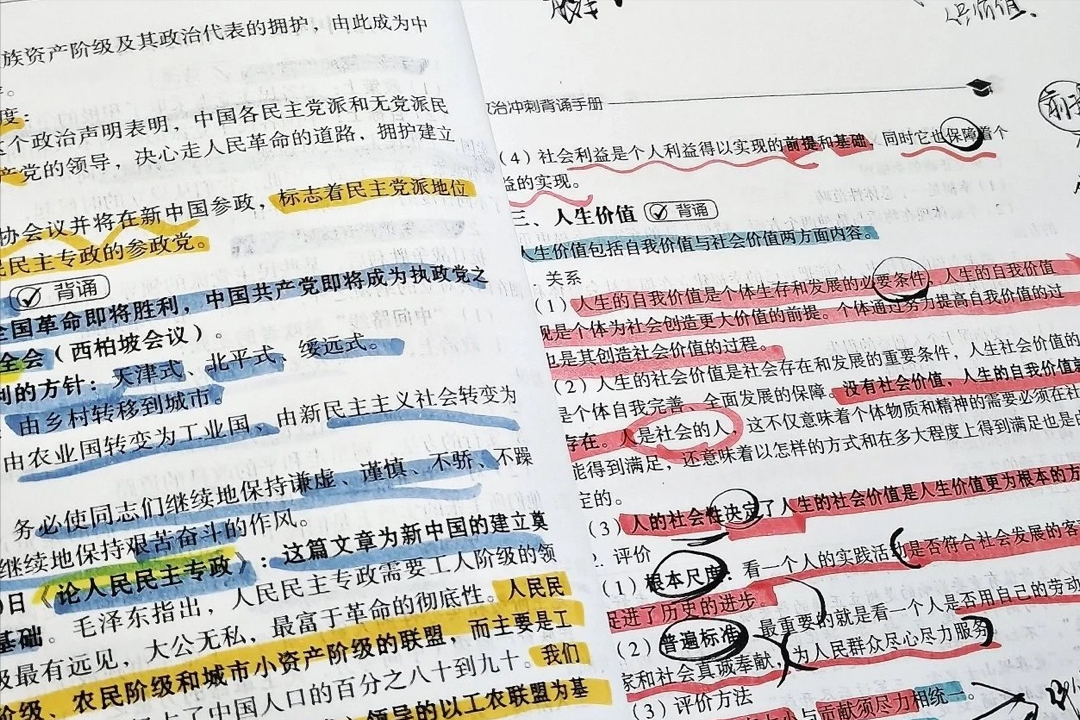 族资产阶级及其政治代表的拥护，由此成为中
度：
个政治声明表明，中国各民主党派和无党派民
产党的领导，决心走人民革命的道路，拥护建立
协会议并将在新中国参政，标志着民主党派地位
民民主专政的参政党。
背诵
全国革命即将胜利，中国共产党即将成为执政党之
全会（西柏坡会议）。
利的方针：天津式、北平式、绥远式。
由乡村转移到城市。
由农业国转变为工业国、由新民主主义社会转变为
务必使同志们继续地保持谦虚、谨慎、不骄、不躁
继续地保持艰苦奋斗的作风。
日《论人民民主专政》：这篇文章为新中国的建立奠
基础。毛泽东指出，人民民主专政需要工人阶级的领
级最有远见，大公无私，最富于革命的彻底性。人民民
级、农民阶级和城市小资产阶级的联盟，而主要是工
占了中国人口的百分之八十到九十。我们
领导的以工农联盟为基
保价值、
政治冲刺背诵手册
前提
（4）社会利益是个人利益得以实现的前提和基础，同时它也保障着个
益的实现。
三、人生价值 背诵
人生价值包括自我价值与社会价值两方面内容。
关系
（1）人生的自我价值是个体生存和发展的必要条件，人生的自我价值
现是个体为社会创造更大价值的前提。个体通过努力提高自我价值的过
也是其创造社会价值的过程。
（2）人生的社会价值是社会存在和发展的重要条件，人生社会价值的
是个体自我完善、全面发展的保障。没有社会价值，人生的自我价值就
存在。人是社会的人，这不仅意味着个体物质和精神的需要必须在社
能得到满足，还意味着以怎样的方式和在多大程度上得到满足也是由
定的。
（3）人的社会性决定了人生的社会价值是人生价值更为根本的方
2. 评价
（1）根本尺度：看一个人的实践活动是否符合社会发展的客
促进了历史的进步
（2）普遍标准：最重要的就是看一个人是否用自己的劳动
家和社会真诚奉献，为人民群众尽心尽力服务
（3）评价方法
与贡献须尽力相统一。